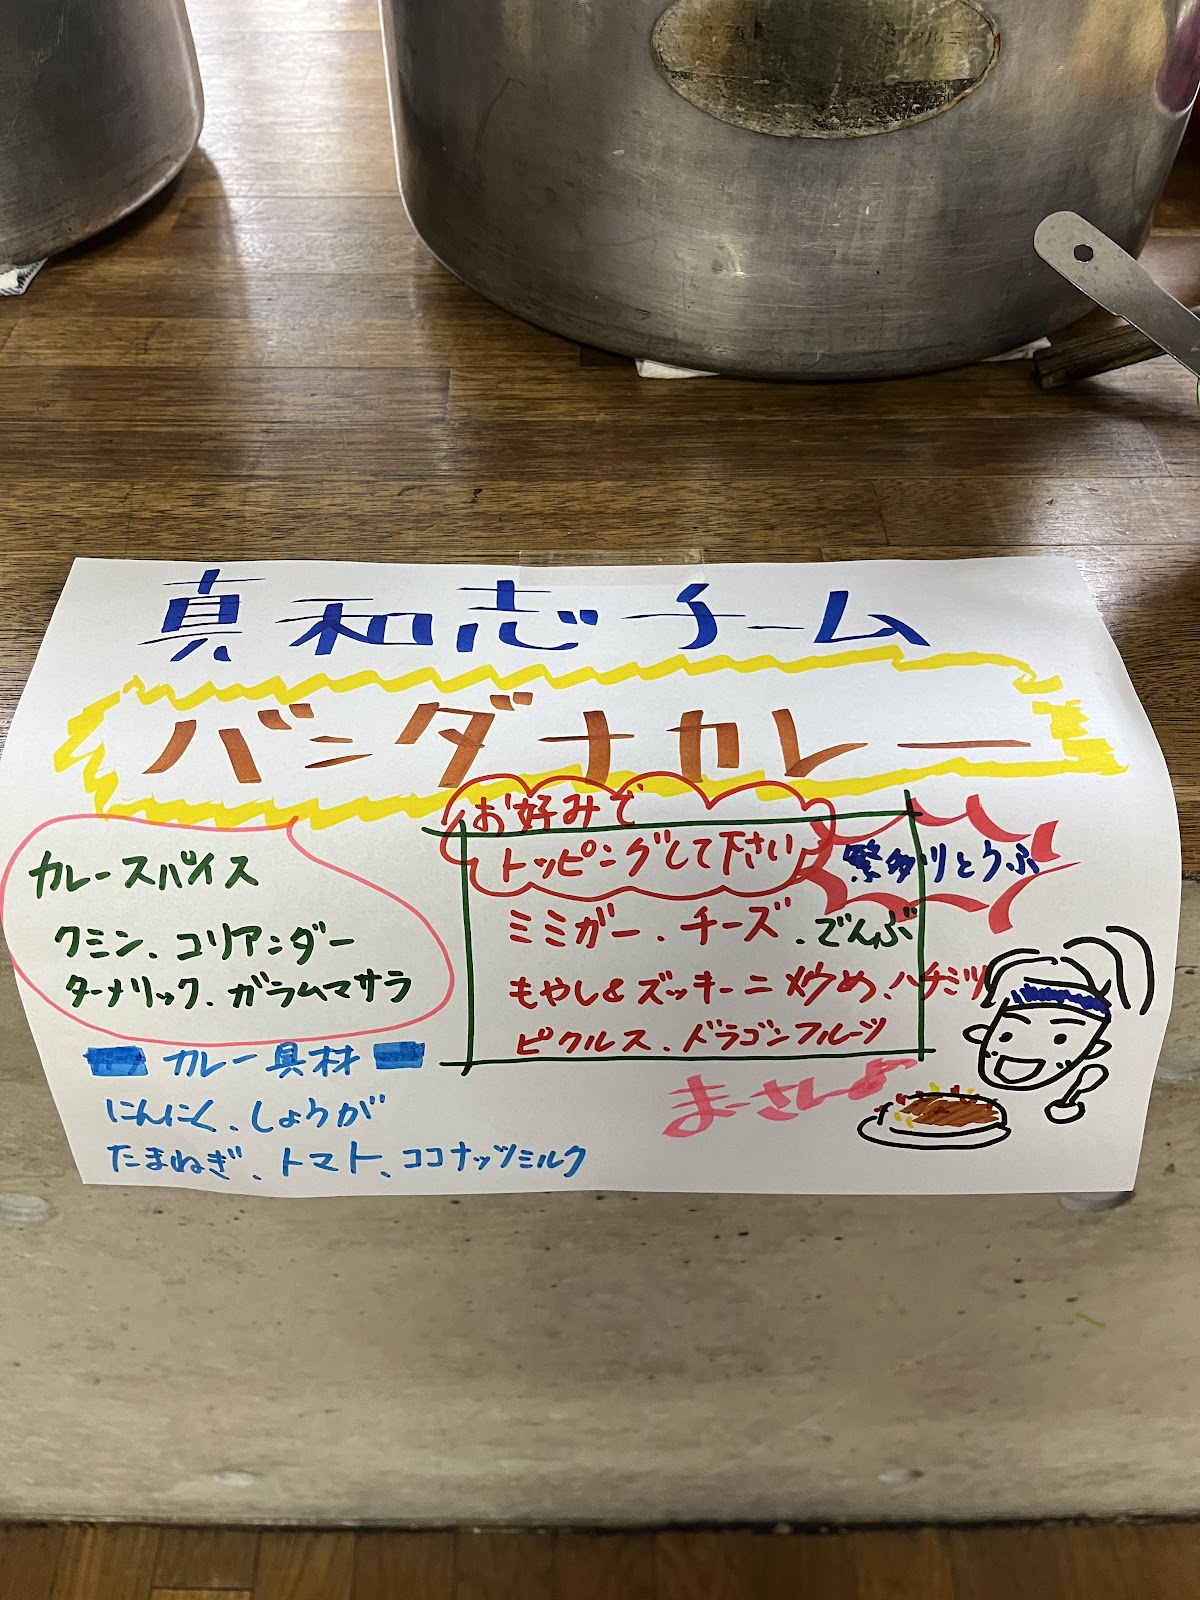 真和志チーム
バンダナカレー
カレースパイス
クミン、コリアンダー
ターメリック、ガラムマサラ
カレー具材
にんにく、しょうが
たまねぎ、トマト、ココナッツミルク
お好みで
トッピングして下さい
繁多川とうふ
ミミガー、チーズ、でんぶ
もやし&ズッキーニ炒め、ハチミツ
ピクルス、ドラゴンフルーツ
まーさん